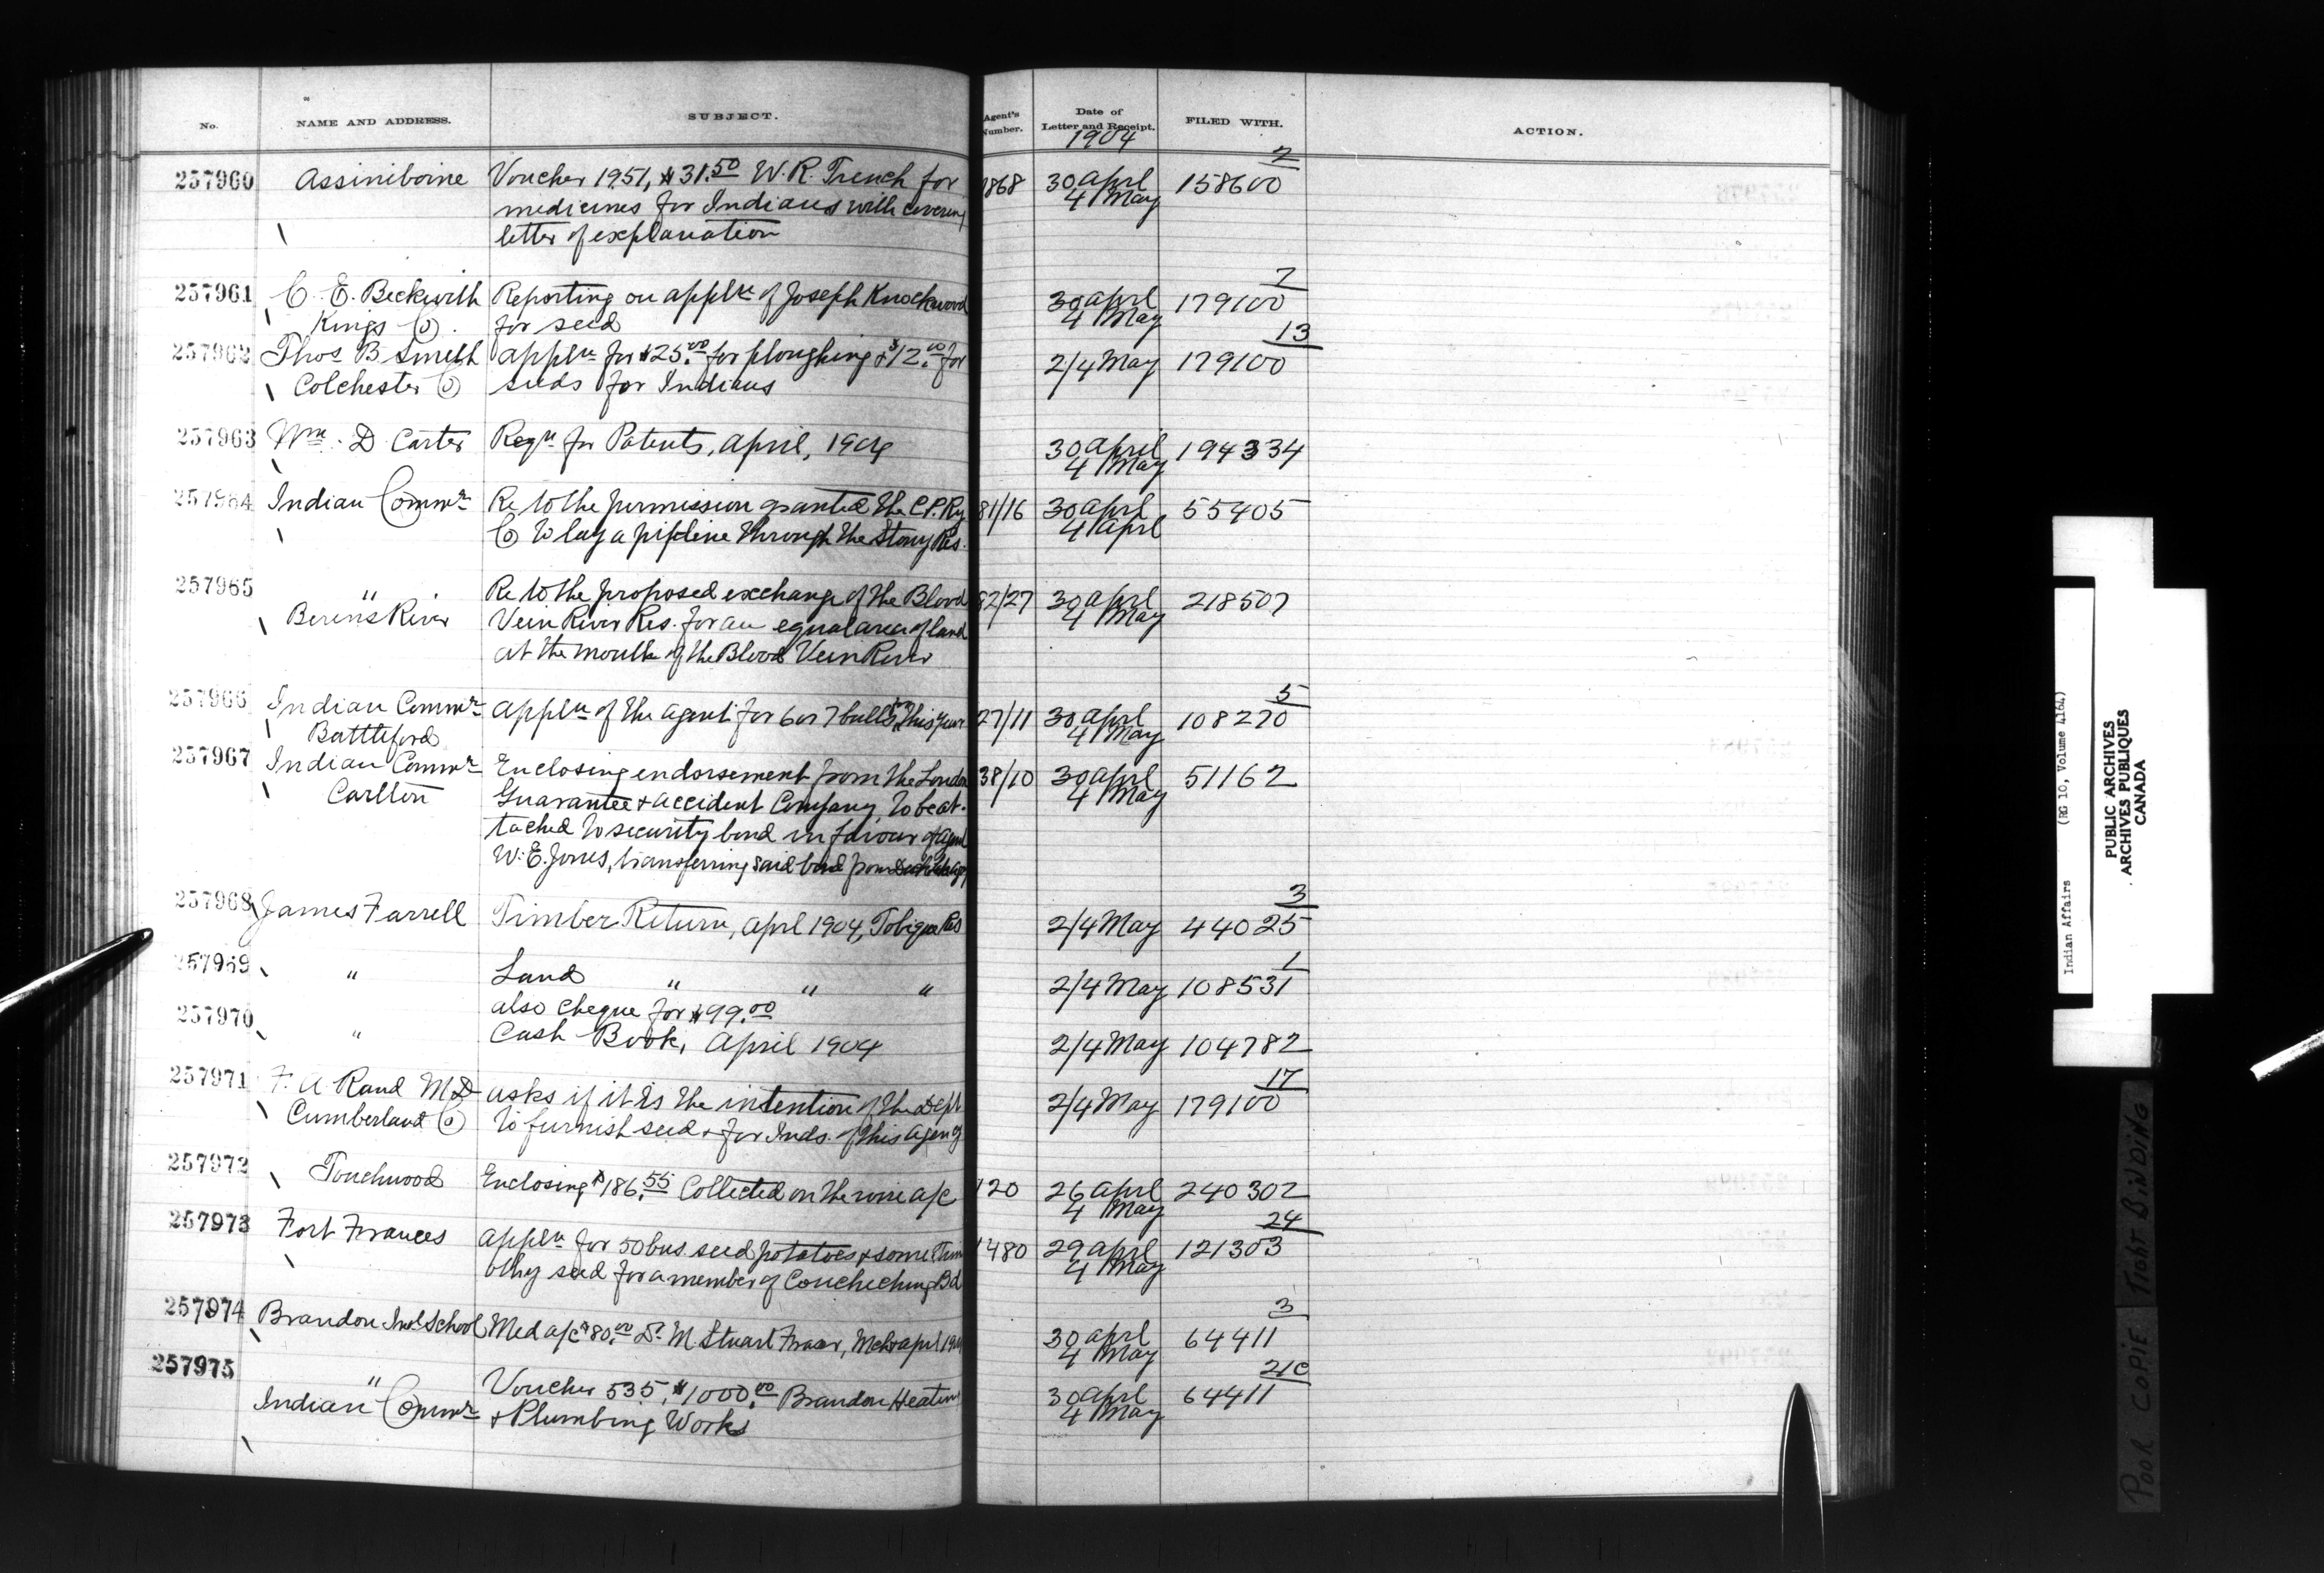 No. NAME AND ADDRESS. SUBJECT. Agent's Number. Date of Letter and Receipt. FILED WITH. ACTION.
1904
257960 Assiniboine Voucher 1951, $31.50 W. R. Trench for 1868 30 April 158600 2
medicines for Indians with covering 4 May
letter of explanation
257961 C. E. Beckwith Reporting on applн of Joseph Knockwood 30 April 179100 7
Kings Co. for seed 4 May
257962 Thos B Smith Appln for $25.00 for ploughing & $12.00 for 2/4 May 179100 13
Colchester Co seeds for Indians
257963 Wm. D Carter Reqn for Patents, April, 1904 30 April 194334
4 May
257964 Indian Commr Re to the permission granted the C.P. Ry 81/16 30 April 55405
Co to lay a pipeline through the Stony Res. 4 April
257965 " Re to the proposed exchange of the Blood 82/27 30 April 218507
Berens River Vein River Res. for an equal area of land 4 May
at the mouth of the Blood Vein River
257966 Indian Commr Appln of the agent for 6 or 7 bulls for this year 27/11 30 April 108270 5
Battleford 4 May
257967 Indian Commr Enclosing endorsement from the London 38/10 30 April 51162
Carlton Guarantee & Accident Company, to be at- 4 May
tached to security bond in favour of Agent
W. E. Jones, transferring said bond from
257968 James Farrell Timber Return, Aprl 1904, Tobique Res 2/4 May 44025 3
257969 " Land " " " 2/4 May 108531 1
also cheque for $99.00
257970 " Cash Book, April 1904 2/4 May 104782
257971 F. A. Rand M.D asks if it is the intention of the Dept 2/4 May 179100 17
Cumberland Co to furnish seed & for Inds. of this Agency
257972 Touchwood Enclosing $186.55 Collected on the wire a/c 120 26 April 240302
4 May
257973 Fort Frances Appln for 50 bus. seed potatoes & some Tim 1480 29 April 121303 24
othy seed for a member of Coucheching Bd 4 May
257974 Brandon Indl School Med a/c $80.00 Dr. M. Stuart Fraser, Mch & Aprl 1904 30 April 64411 3
4 May
257975 " Voucher 535, $1000.00 Brandon Heating 30 April 64411 21C
Indian Commr & Plumbing Works 4 May
Indian Affairs (RG 10, Volume 4164)
PUBLIC ARCHIVES
ARCHIVES PUBLIQUES
CANADA
POOR COPIE TIGHT BINDING